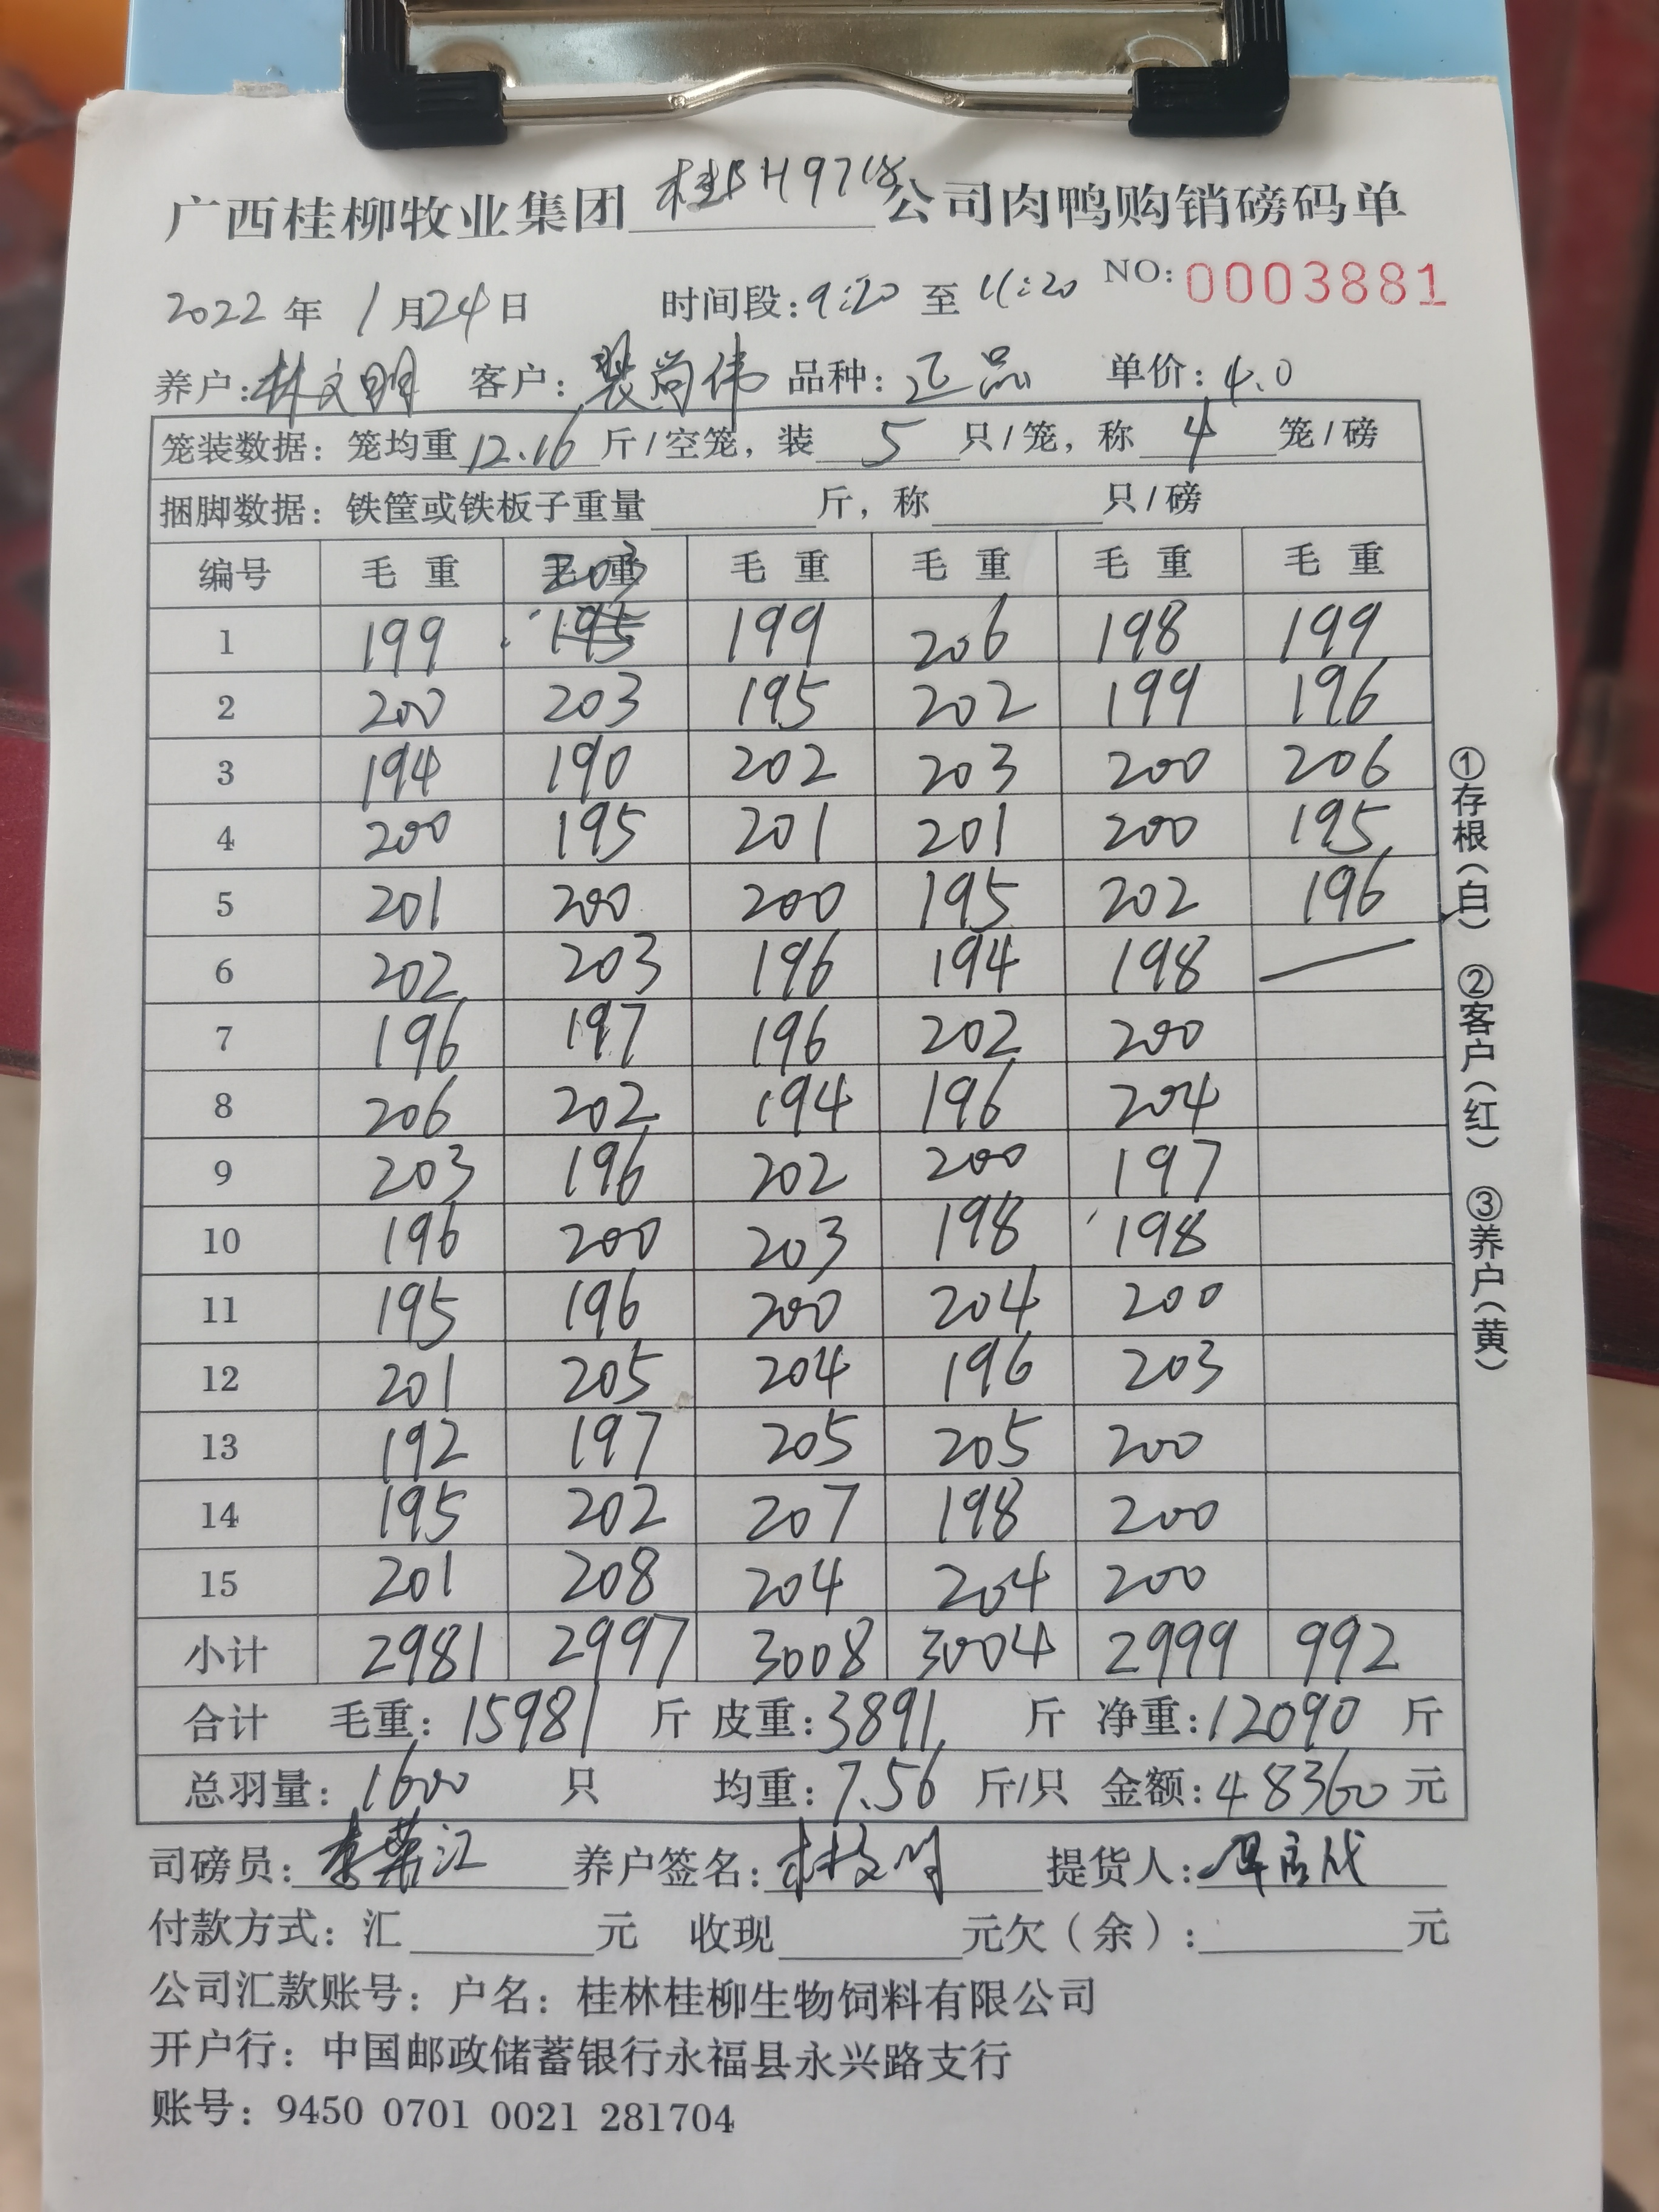 广西桂柳牧业集团桂BH9718公司肉鸭购销磅码单
NO: 0003881
2022年 1月24日 时间段:9:20 至 11:20
养户:林文明 客户:裴尚伟 品种:正品 单价:4.0
笼装数据:笼均重12.16斤/空笼,装 5 只/笼,称 4 笼/磅
捆脚数据:铁筐或铁板子重量 斤,称 只/磅
编号 毛重 毛重 毛重 毛重 毛重 毛重
203
1 199 195 199 206 198 199
2 200 203 195 202 199 196
3 194 190 202 203 200 206
4 200 195 201 201 200 195
5 201 200 200 195 202 196
6 202 203 196 194 198 —
7 196 197 196 202 200
8 206 202 194 196 204
9 203 196 202 200 197
10 196 200 203 198 198
11 195 196 200 204 200
12 201 205 204 196 203
13 192 197 205 205 200
14 195 202 207 198 200
15 201 208 204 204 200
小计 2981 2997 3008 3004 2999 992
合计 毛重:15981 斤 皮重:3891 斤 净重:12090 斤
总羽量:1600 只 均重:7.56 斤/只 金额:48360元
司磅员:李荣江 养户签名:林文明 提货人:
付款方式:汇 元 收现 元欠(余): 元
公司汇款账号:户名:桂林桂柳生物饲料有限公司
开户行:中国邮政储蓄银行永福县永兴路支行
账号:9450 0701 0021 281704
①存根(白) ②客户(红) ③养户(黄)